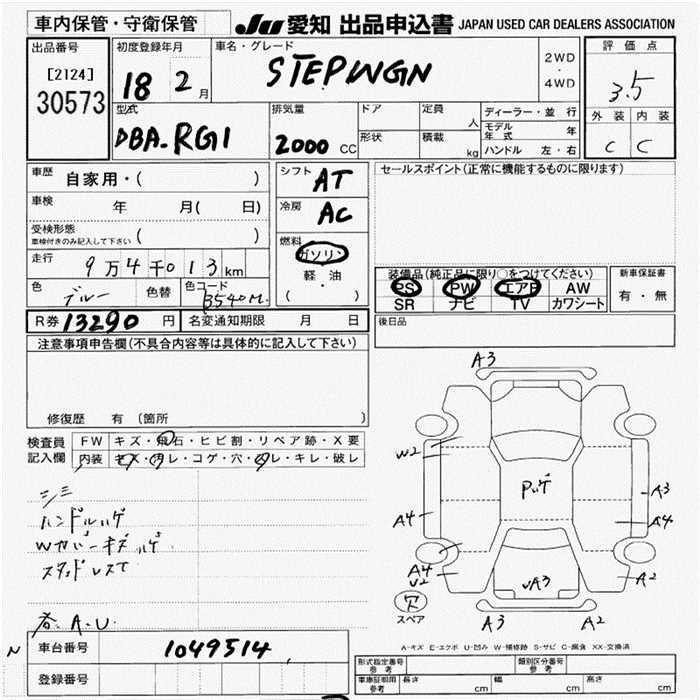 車内保管・守衛保管
JU 愛知 出品申込書 JAPAN USED CAR DEALERS ASSOCIATION
出品番号
[2124]
30573
初度登録年月
18 2 月
車名・グレード
STEPWGN
2WD
・
4WD
評価点
3.5
外装 内装
C C
型式
DBA-RG1
排気量
2000 CC
ドア
形状
定員
人
積載
kg
ディーラー・並行
モデル年式 年
ハンドル 左・右
車歴 自家用・( )
車検 年 月( 日)
受検形態
車検付きのみ記入して下さい ( )
走行 9万4千013km
色 ブルー 色替
色コード B540M
R券 13290 円 名変通知期限 月 日
シフト AT
冷房 AC
燃料
ガソリン
軽・油
( ・ )
セールスポイント(正常に機能するものに限ります)
装備品(純正品に限り○をつけてください)
PS PW エアB AW
SR ナビ TV カワシート
新車保証書
有・無
後日品
注意事項申告欄(不具合内容等は具体的に記入して下さい)
修復歴 有 (箇所 )
検査員
記入欄
FW キズ・飛石・ヒビ割・リペア跡・X要
内装 キズ・汚レ・コゲ・穴・凹レ・キレ・破レ
シミ
ハンドルハゲ
Wカバーキズハゲ
スタッドレスて
A.U.
N
車台番号 1049514
登録番号
A3
W2
A4
A4
V2
Pハゲ
A3
A4
A2
VA3
A3 A2
欠
スペア
A-キズ E-エクボ U-凹み W-補修跡 S-サビ C-腐食 XX-交換済
形式指定番号
参考
類別区分番号
参考
車庫証明用
参考
長さ cm 幅 cm 高さ cm